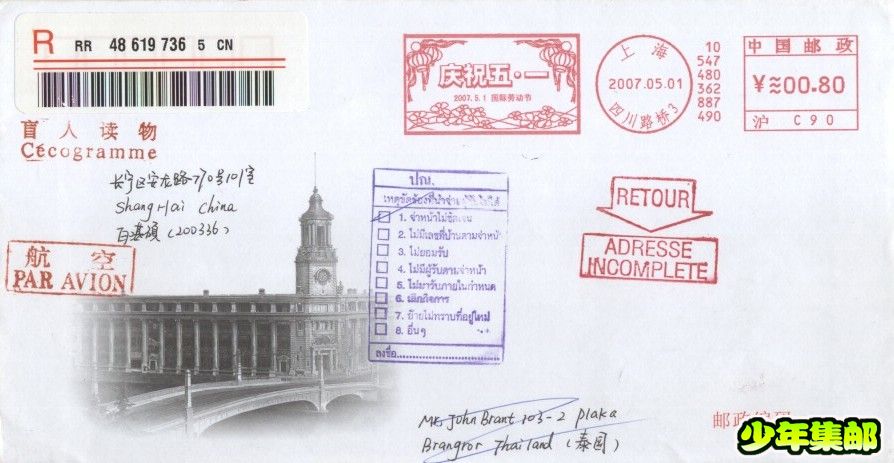 R RR 48 619 736 5 CN
盲人读物
Cécogramme
长宁区安龙路
ShangHai China
(200336)
航空
PAR AVION
庆祝五·一
2007.5.1 国际劳动节
上海
2007.05.01
四川路桥3
10
547
480
362
887
490
中国邮政
¥≈00.80
沪 C90
ปณ.
เหตุขัดข้องที่นำจ่าย
1. จ่าหน้าไม่ชัดเจน
2. ไม่มีเลขที่บ้านตามจ่าหน้า
3. ไม่ยอมรับ
4. ไม่มีผู้รับตามจ่าหน้า
5. ไม่มารับภายในกำหนด
6. เลิกกิจการ
7. ย้ายไม่ทราบที่อยู่ใหม่
8. อื่นๆ
ลงชื่อ
RETOUR
ADRESSE
INCOMPLETE
John Brant 103-2 plaka
Brangror Thailand (泰国)
邮政编码
少年集邮